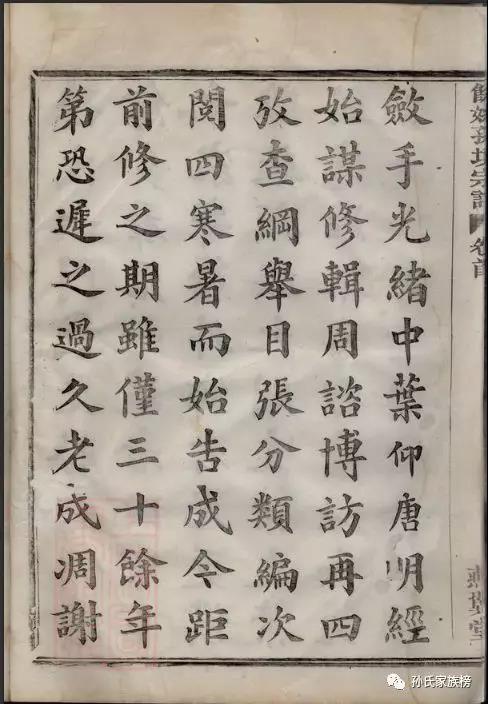 斂手光緒中葉仰唐明經
始謀修輯周諮博訪再四
攷查綱舉目張分類編次
閱四寒暑而始告成今距
前修之期雖僅三十餘年
第恐遲之過久老成凋謝
宗譜 卷首
孙氏家族榜